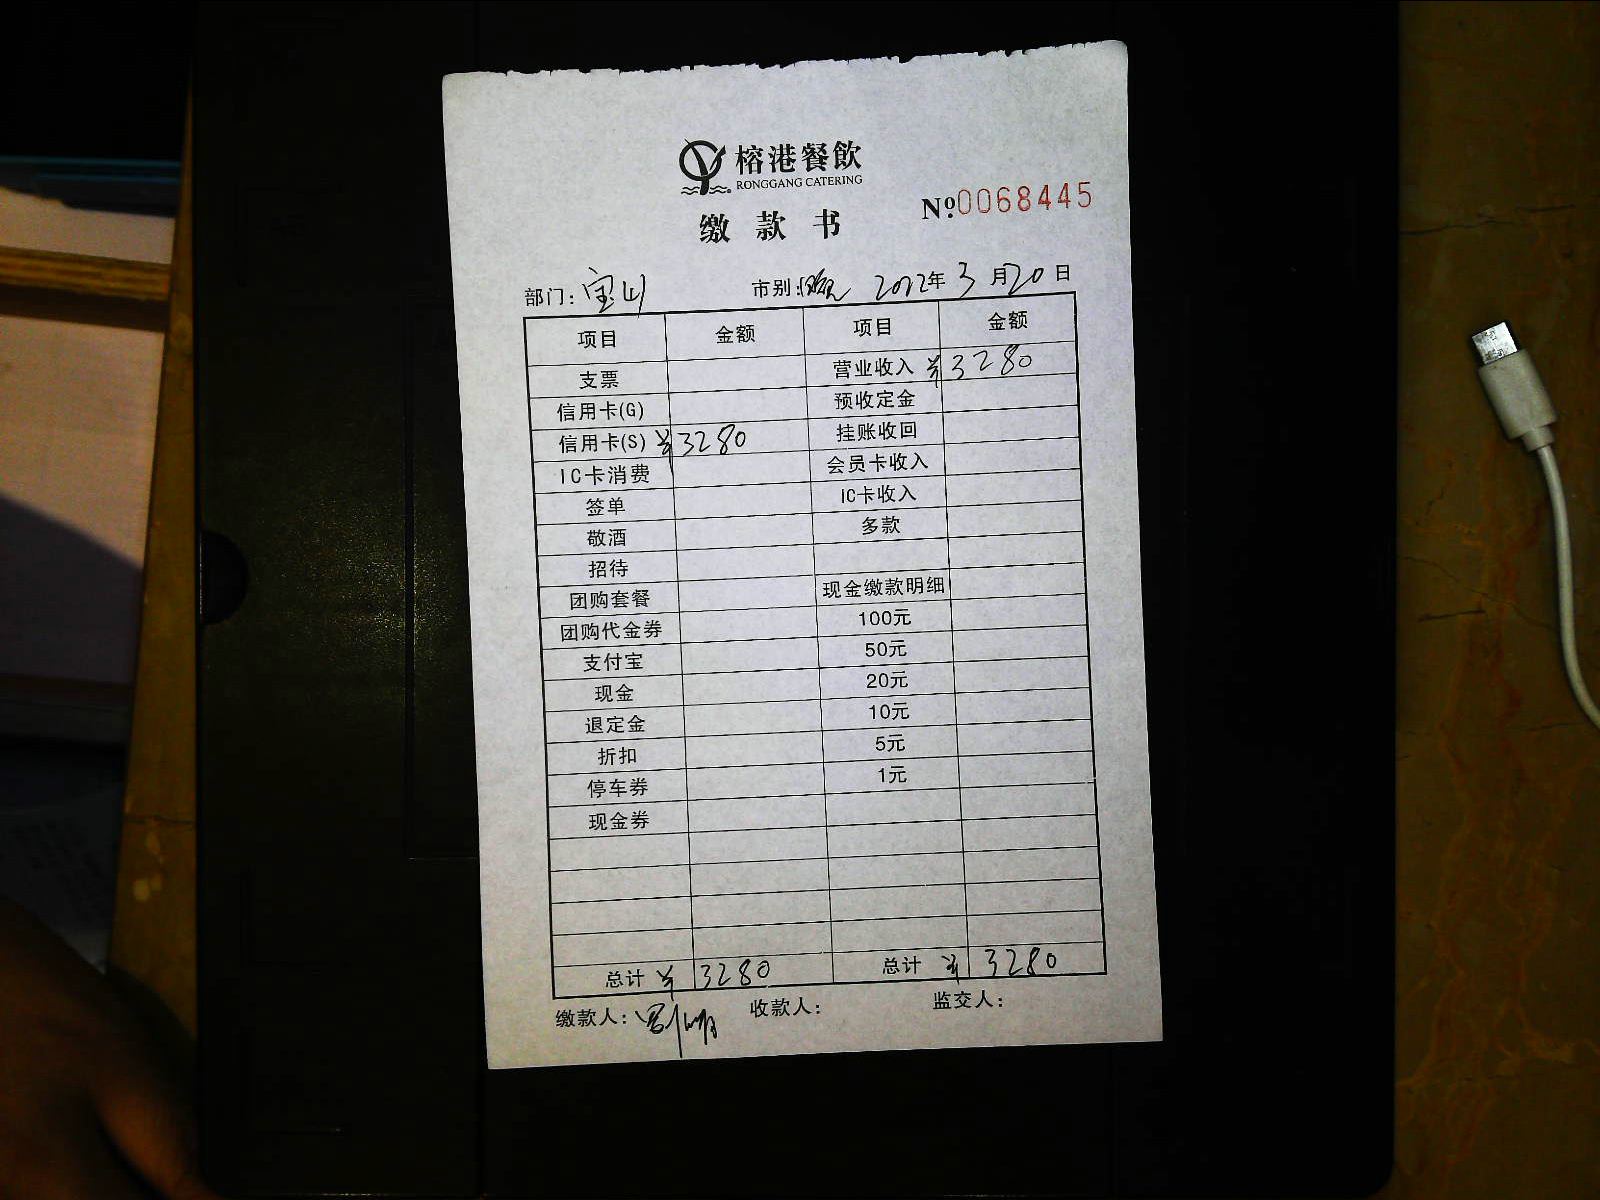 榕港餐飲
RONGGANG CATERING
缴款书 Nº0068445
部门:宝山 市别:晚 2022年3月20日
项目 金额 项目 金额
支票 营业收入 ¥3280
信用卡(G) 预收定金
信用卡(S) ¥3280 挂账收回
IC卡消费 会员卡收入
签单 IC卡收入
敬酒 多款
招待
团购套餐 现金缴款明细
团购代金券 100元
支付宝 50元
现金 20元
退定金 10元
折扣 5元
停车券 1元
现金券
总计 ¥3280 总计 ¥3280
缴款人: 收款人: 监交人: